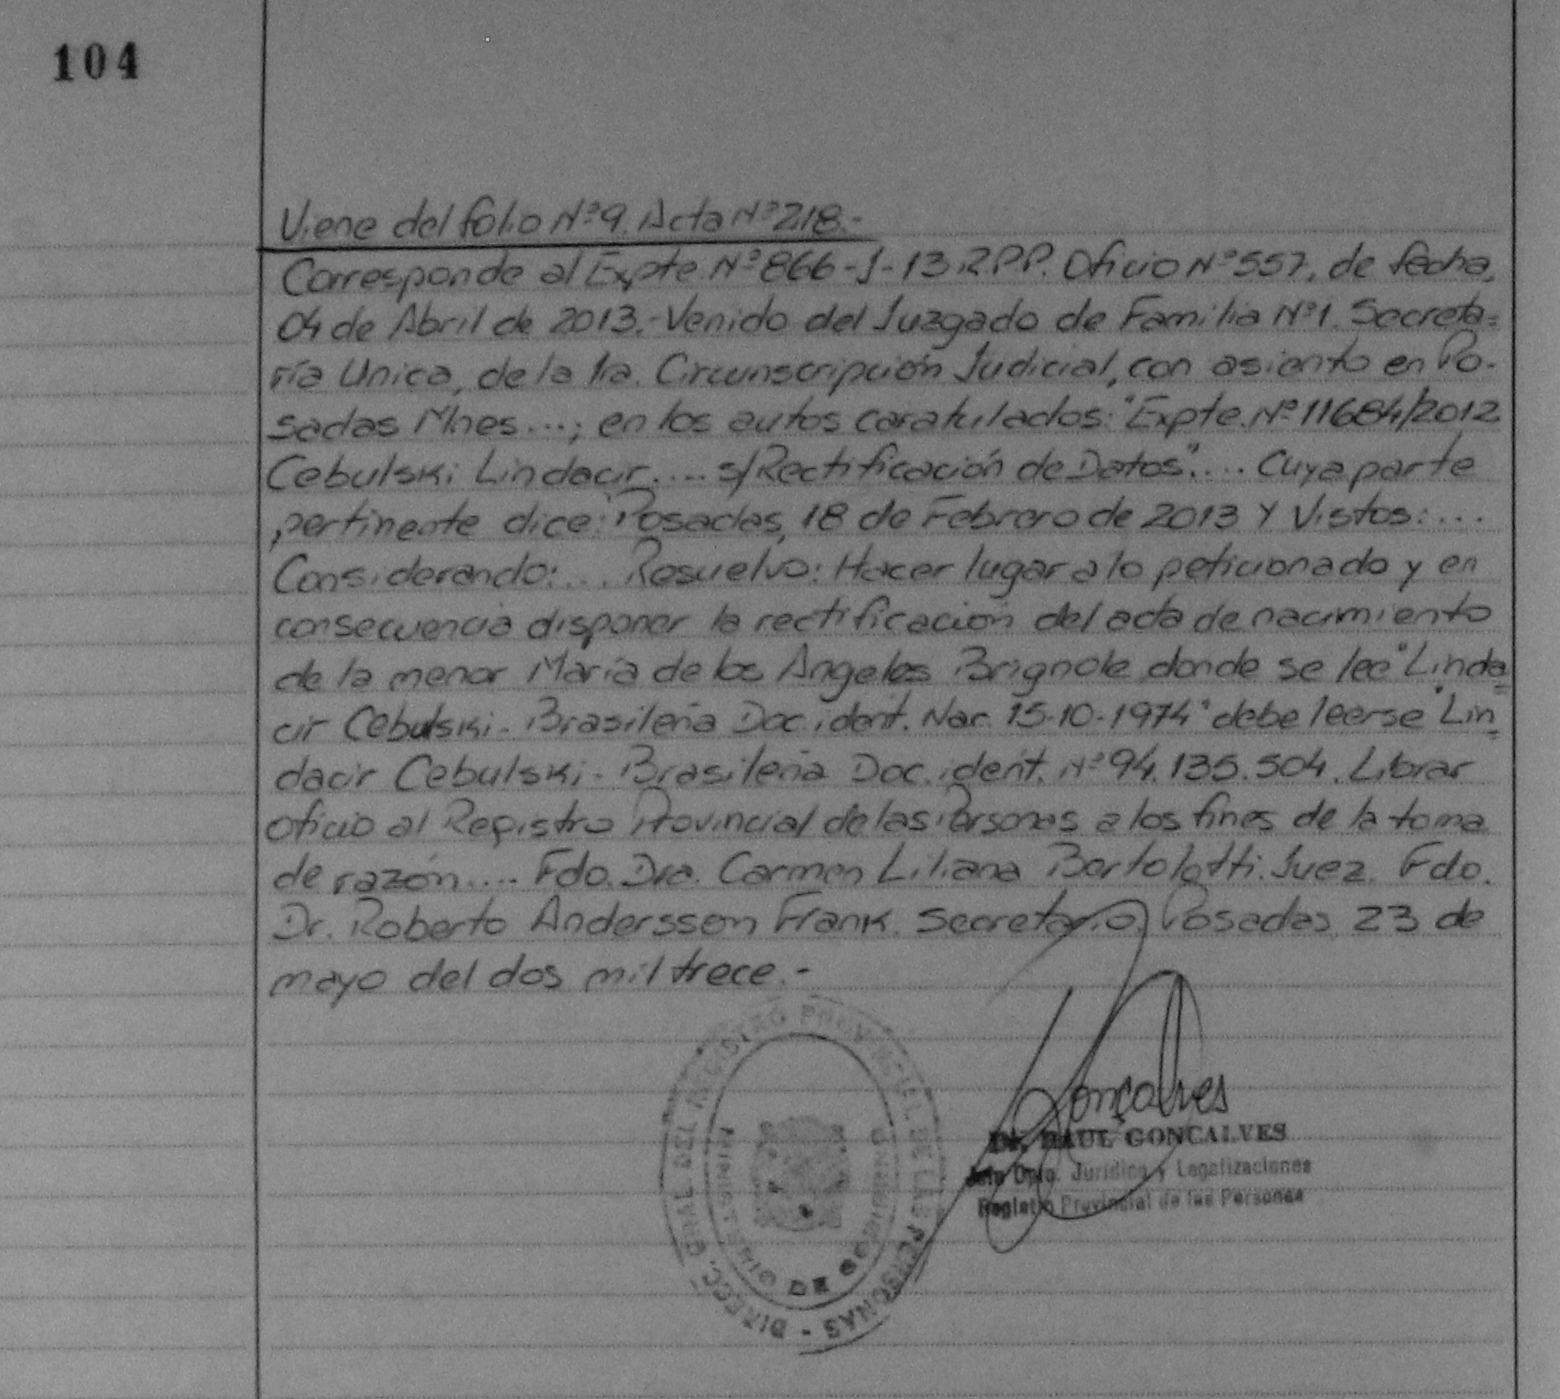 104
Viene del folio Nº9. Acta Nº218.-
Corresponde al Expte. Nº866-J-13.R.P.P. Oficio Nº557, de fecha,
04 de Abril de 2013.- Venido del Juzgado de Familia Nº1. Secreta=
ría Unica, de la 1ra. Circunscripción Judicial, con asiento en Po-
sadas Mnes...; en los autos caratulados: "Expte. Nº11684/2012
Cebulski Lindacir.... s/Rectificación de Datos".... Cuya parte
pertinente dice: Posadas, 18 de Febrero de 2013 Y Vistos:...
Considerando:... Resuelvo: Hacer lugar a lo peticionado y en
consecuencia disponer la rectificación del acta de nacimiento
de la menor María de los Angeles Brignole donde se lee "Linda=
cir Cebulski- Brasileña Doc. ident. Nac. 15-10-1974" debe leerse "Lin=
dacir Cebulski- Brasileña Doc. ident. Nº94.135.504. Librar
oficio al Registro Provincial de las Personas a los fines de la toma
de razón.... Fdo. Dra. Carmen Liliana Bortolotti. Juez. Fdo.
Dr. Roberto Andersson Frank. Secretario. Posadas, 23 de
mayo del dos mil trece.-
DIRECC. GRAL. DEL REGISTRO PROVINCIAL DE LAS PERSONAS -
MINISTERIO DE GOBIERNO
Gonçalves
Dr. RAUL GONCALVES
Jefe Dpto. Jurídico y Legalizaciones
Registro Provincial de las Personas